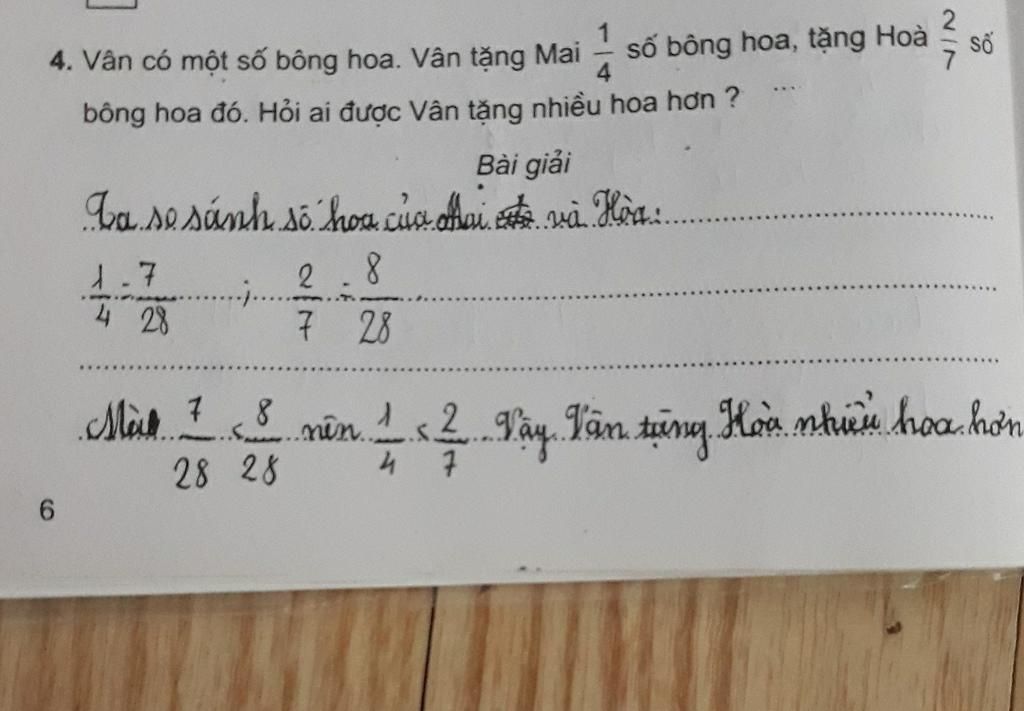 4. Vân có một số bông hoa. Vân tặng Mai 1/4 số bông hoa, tặng Hoà 2/7 số
bông hoa đó. Hỏi ai được Vân tặng nhiều hoa hơn ?
Bài giải
Ta so sánh số hoa của Mai và Hòa:
1/4 = 7/28 ; 2/7 = 8/28
Mà 7/28 < 8/28 nên 1/4 < 2/7 . Vậy Vân tặng Hòa nhiều hoa hơn
6